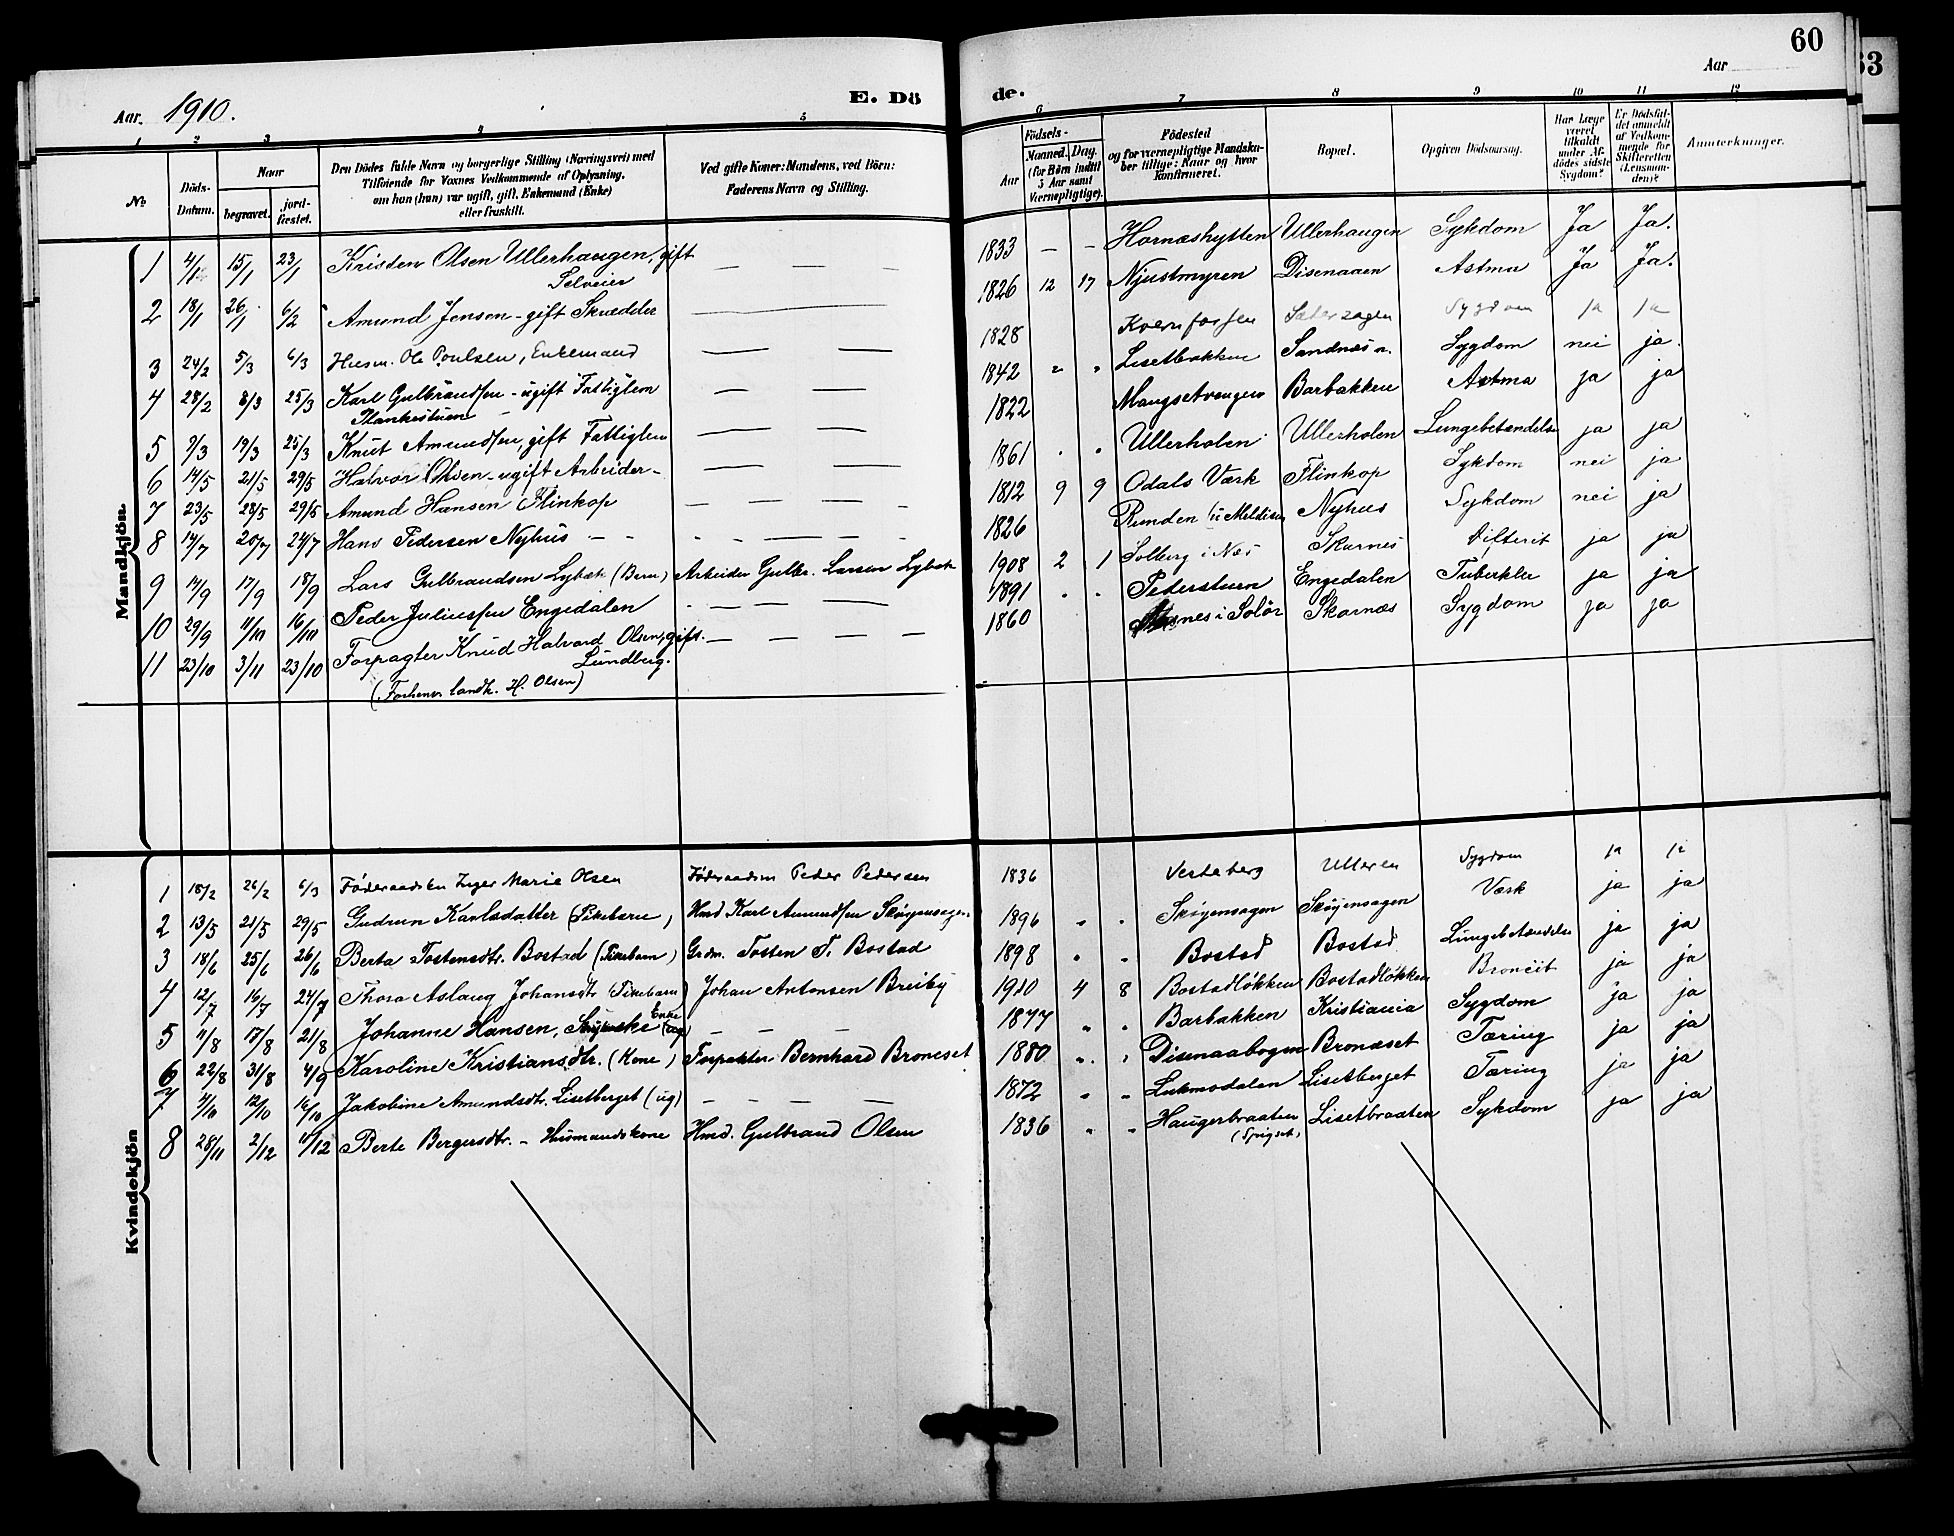 60
63
Aar. 1910.
E. Dö
de.
Aar
1 2 3 4 5
6 7 8 9 10 11 12
No
Döds-
Datum.
Naar
begravet.
jord-
fæstet.
Den Dödes fulde Navn og borgerlige Stilling (Næringsvei) med
Tilföiende for Voxnes Vedkommende af Oplysning,
om han (hun) var ugift, gift, Enkemand (Enke)
eller fraskilt.
Ved gifte Koner: Mandens, ved Börn:
Faderens Navn og Stilling.
Födsels-
Aar
Maaned. Dag.
(for Børn indtil
5 Aar samt
Værnepligtige).
Födested
og for værnepligtige Mandska-
ber tillige: Naar og hvor
konfirmeret.
Bopæl.
Opgiven Dödsaarsag.
Har Læge
været
tilkaldt
under Af-
dödes sidste
Sygdom?
Er Dödsfal-
det anmeldt
af Vedkom-
mende for
Skifteretten
(Lensman-
den)?
Anmerkninger.
Mandkjön.
1 4/1 15/1 23/1 Kristen Olsen Ullerhaugen, gift — — — 1833 — — Hornæshytten Ullerhaugen Sykdom Ja Ja.
Selveier
2 18/1 26/1 6/2 Amund Jensen - gift Skrædder 1826 12 17 Njustmyren Disenaaen Astma Ja Ja.
3 24/2 5/3 6/3 Husm. Ole Poulsen, Enkemand — — 1828 Kvernfossen Sæterzagen Sygdom ja ja
4 28/2 8/3 25/3 Karl Gulbrandsen - ugift Fattiglem — — 1842 " " Lisetbakken Sandnæs n. Sygdom nei ja.
Plankestuen
5 9/3 19/3 25/3 Knut Amundsen, gift Fattiglem — — 1822 Mangsetvengen Barbakken Astma ja ja
6 14/5 21/5 29/5 Halvor Olsen - ugift Arbeider - — — 1861 " " Ullerholen Ullerholen Lungebetændelse ja ja
7 23/5 28/5 29/5 Amund Hansen Flinkop - — — - 1812 9 9 Odals Værk Flinkop Sykdom nei ja
8 14/7 20/7 24/7 Hans Pedersen Nyhus — - - - — — - 1826 Runden Nyhus Sykdom nei ja
9 14/9 17/9 18/9 Lars Gulbrandsen Lybæk (Barn) Arbeider Gulbr. Larsen Lybæk 1908 2 1 Solberg i Næs Skarnes Difterit ja ja
10 29/9 11/10 16/10 Peder Juliussen Engedalen - — — — 1891 " " Pedersstuen Engedalen Tuberkler ja ja
11 23/10 3/11 23/10 Forpagter Knud Halvard Olsen, gift. — — — — 1860 Aasnes i Solør Skarnæs Sygdom ja ja
Lundberg.
(Forhenv. landh. H. Olsen)
Kvindekjön
1 18/2 26/2 6/3 Føderaadsken Inger Marie Olsen Føderaadsm Peder Pedersen 1836 Vestaberg Ulleren Sygdom ja ja
2 13/5 21/5 29/5 Gudrun Karlsdatter (Pikebarn) Hmd Karl Amundsen Skøyensagen 1896 " " Skøyensagen Skøyensagen Værk ja ja
3 18/6 25/6 26/6 Berta Tostensdtr. Bostad (Pikebarn) Grdm. Tosten T. Bostad 1898 " " Bostad Bostad Lungebetændelse ja ja
4 12/7 16/7 24/7 Thora Aslaug Johansdtr (Pikebarn) Johan Antonsen Breiby 1910 4 8 Bostadløkken Bostadløkken Broncit ja ja
Enke
5 11/8 17/8 21/8 Johanne Hansen, — — — 1877 " " Barbakken Kristiania Sygdom ja ja
6 22/8 31/8 4/9 Karoline Kristiansdtr. (Kone) Forpakter Bernhard Broneset 1880 " " Disenaabogen Bronæset Tæring ja ja
7 4/10 12/10 16/10 Jakobine Amundsdtr. Lisetberget (ug) — — — — 1872 " " Lukmodalen Lisetberget Tæring ja ja
8 28/11 2/12 11/12 Berte Bergersdtr. - Husmandskone Hmd. Gulbrand Olsen 1836 " " Haugerbraaten Lisetbraaten Sykdom ja ja
(Spigset)